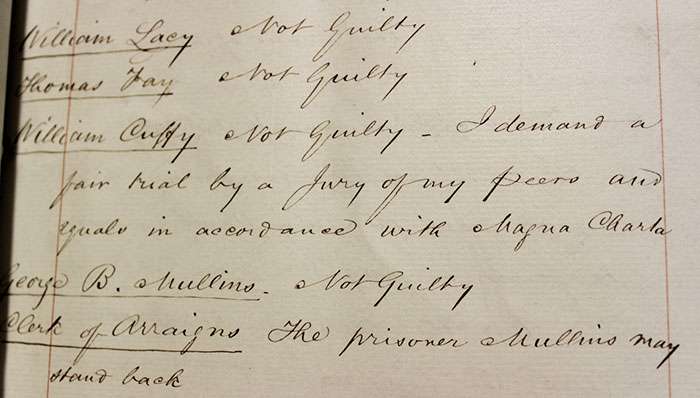 William Lacy Not Guilty
Thomas Fay Not Guilty
William Cuffy Not Guilty - I demand a
fair trial by a Jury of my peers and
equals in accordance with Magna Charta
George B. Mullins. Not Guilty
Clerk of Arraigns The prisoner Mullins may
stand back